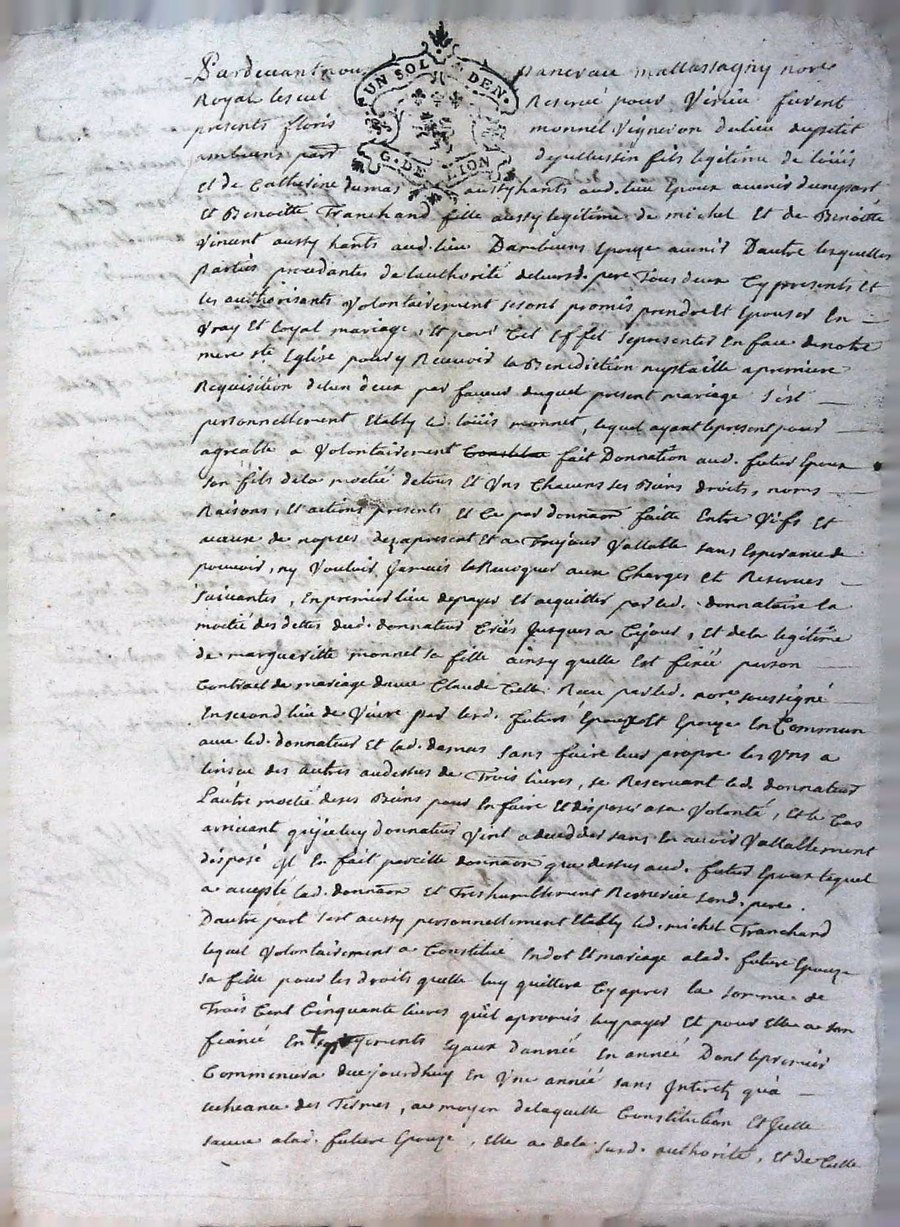 Pardevant nou UN SOL DEN. Pancrace mattassagny nore
Royal les eul Reservé pour Virieu furent
presents floris monnet Vigneron du lieu du petit
ambiuns part G. DE LION de pellussin fils legitime de loüis
et de Catherine dumas aussy hants aud. lieu Epoux avenir dunepart
Et Benoitte Tranchand fille aussy legitime de michel Et de Benoitte
Vincent aussy hants aud. lieu Dambiuns Epouze avenir Dautre lesquelles
Parties procedantes de lauthorité deleursd. pere Tous deux Cy presents Et
les authorisants Volontairement se sont promis prendre Et Epouser En
Vray Et loyal mariage, Et pour Cet Effet se presenter En face de notre
mere ste Eglise pour y Recevoir la Benediction nuptialle a premiere
Requisition delun deux par faveur duquel present mariage s'est
personnellement Etably led. loüis monnet, lequel ayant le present pour
agreable a Volontairement Constitue fait Donnation aud. futur Epoux
son fils dela moitié detous Et Uns Chacuns ses Biens droits, noms
Raisons, Et actions presents Et Ce par donnaon faitte Entre Vifs Et
a cause de nopces dez apresent Et a Toujour Vallable sans Esperance de
pouvoir, ny Vouloir Jamais la Revoquer aux Charges Et Reserves
Suivantes, En premier lieu de payer Et acquitter par led. donnataire la
moitié des dettes dud. donnateur Créés Jusques a Cejour, Et dela legitime
de margueritte monnet sa fille ainsy quelle Est fixée par son
Contract de mariage avec Claude Celle Receu par led. nore soussigné
En second lieu de Vivre par lesd. futurs Epoux Et Epouze En Commun
avec led. donnateur Et lad. dumas sans faire leur propre les Uns a
linsceu des autres audessus de Trois livres, se Reservant led. donnateur
Lautre moitié deses Biens pour En faire Et disposer a sa Volonté, Et le Cas
arrivant qu'iceluy donnateur Vint a deceder sans En avoir Vallablement
disposé Il En fait pareille donnaon que dessus aud. futur Epoux lequel
a accepté lad. donnaon Et Treshumblement Remercié sond. pere.
Dautre part sest aussy personnellement Etably led. michel Tranchand
lequel Volontairement a Constitué En dot Et mariage a lad. future Epouze
sa fille pour les droits quelle luy quittera Cy apres la somme de
Trois Cent Cinquante livres qu'il a promis luy payer Et pour Elle a son
fiancé En payements Egaux dannée En année Dont le premier
Commencera dece jourdhuy En Une année sans Interetz qu'a
echeance des Termes, au moyen de laquelle Constitution Et Icelle
sauve a lad. future Epouze, Elle a de la susd. authorité, Et de Celle